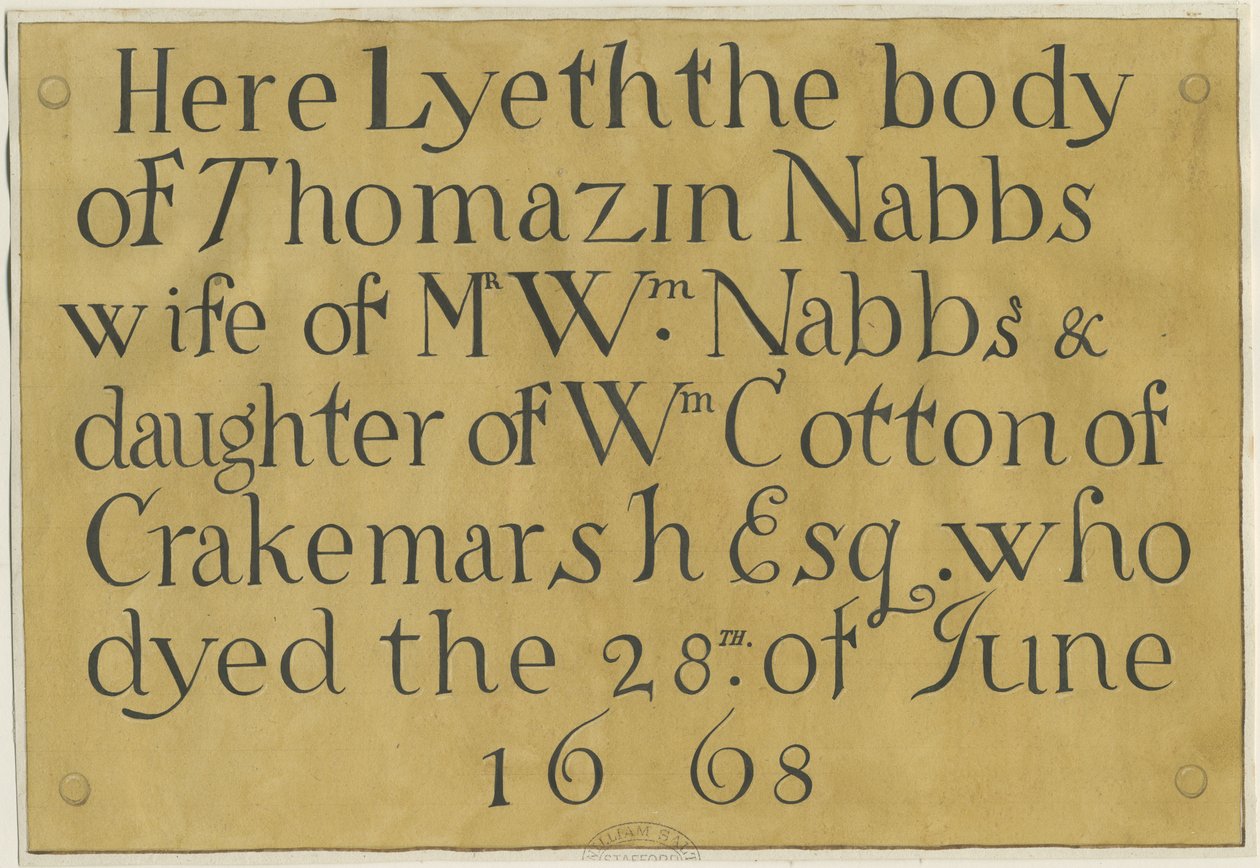 Here Lyeth the body
of Thomazin Nabbs
wife of Mʳ Wᵐ. Nabbs &
daughter of Wᵐ Cotton of
Crakemarsh Esq. who
dyed the 28ᵀᴴ. of June
1668
WILLIAM SALT
STAFFORD